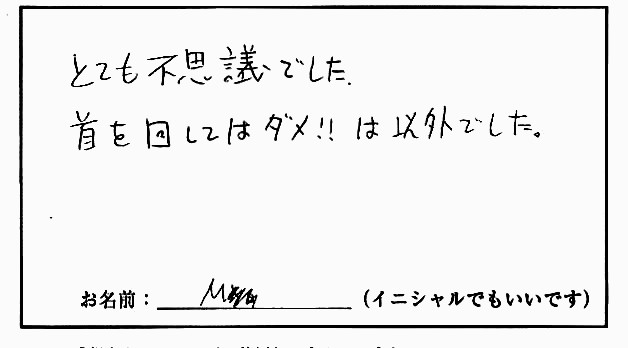 とても不思議でした.
首を回してはダメ!! は以外でした。
お名前： M （イニシャルでもいいです）